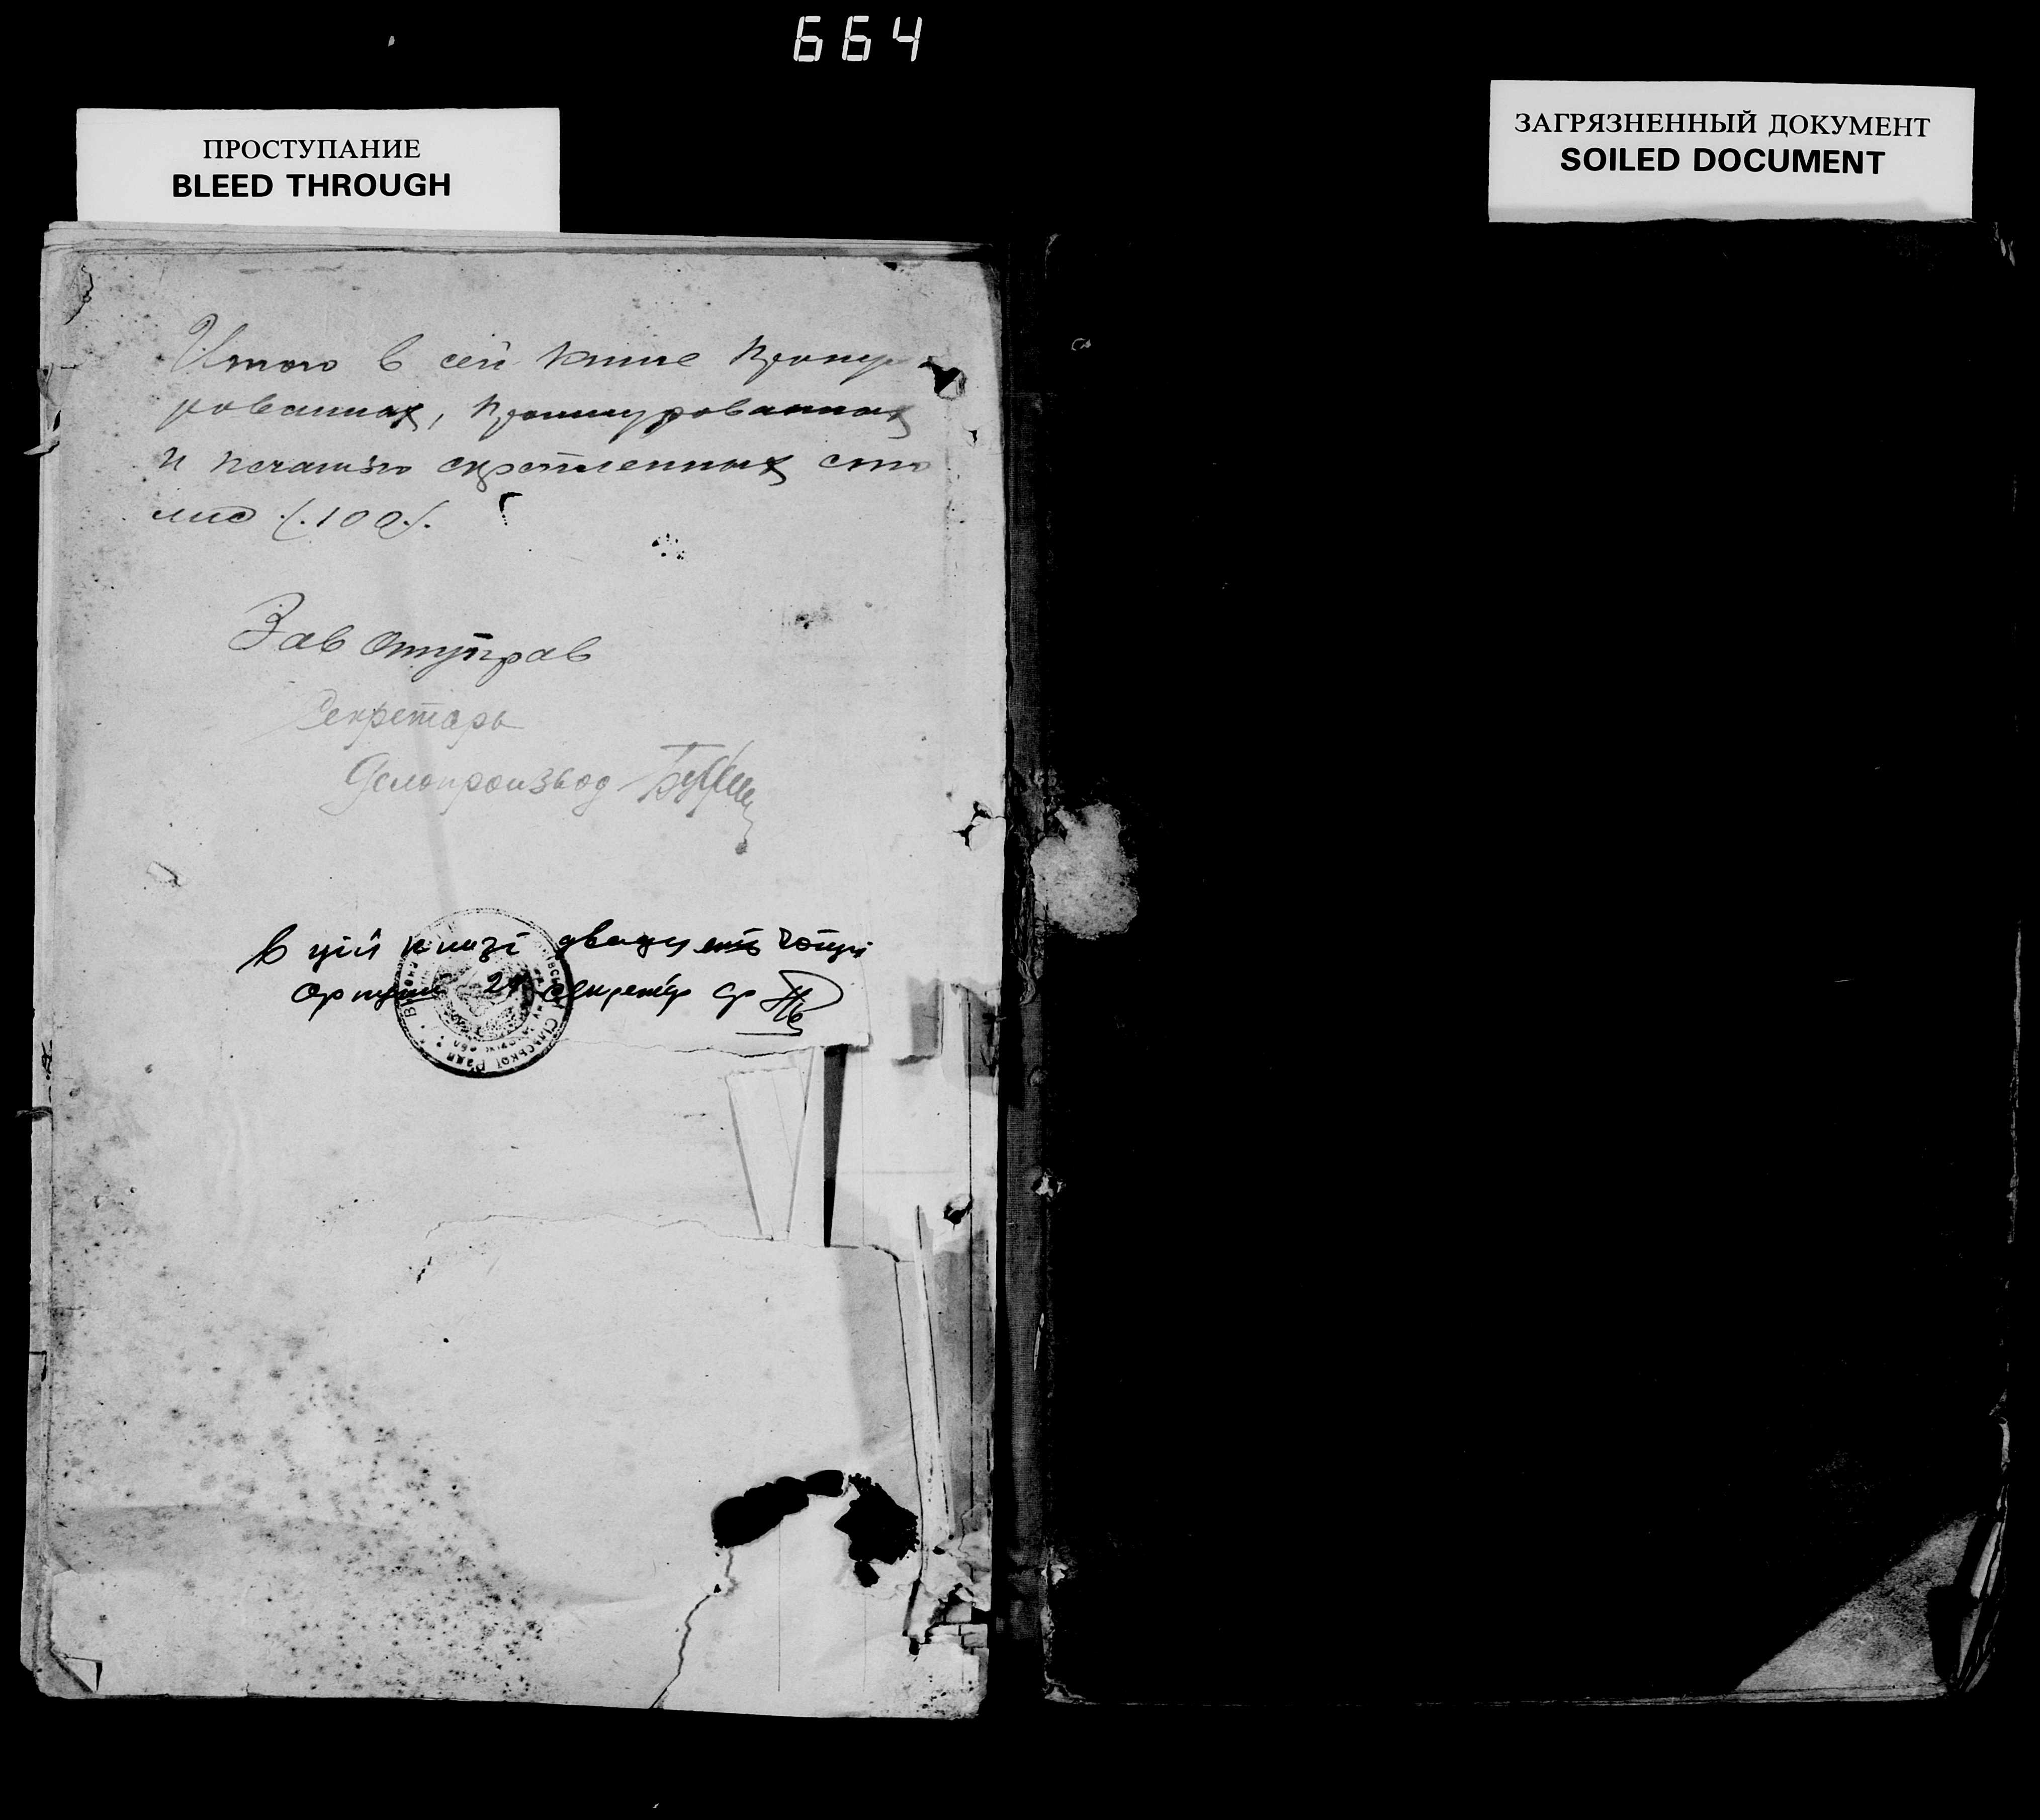 664
ПРОСТУПАНИЕ
BLEED THROUGH
ЗАГРЯЗНЕННЫЙ ДОКУМЕНТ
SOILED DOCUMENT
Итого в сей книге
рованных, прошнурованных
и печатью скрепленных сто
./.100/.
Зав Отуправ
Секретарь
Делопроизвод
В цій книзі двадцять чотири
секретар
Сільської Ради